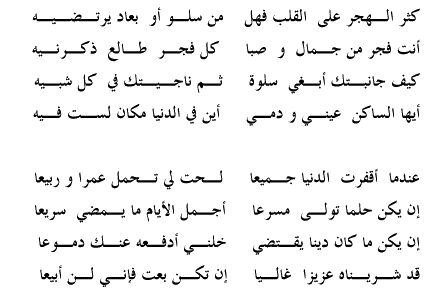 كثر الهجر على القلب فهل من سلو أو بعاد يرتضيه
أنت فجر من جمال و صبا كل فجر طالع ذكرنيه
كيف جانبتك أبغي سلوة ثم ناجيتك في كل شبيه
أيها الساكن عيني و دمي أين في الدنيا مكان لست فيه
عندما أقفرت الدنيا جميعا لحت لي تحمل عمرا و ربيعا
إن يكن حلما تولى مسرعا أجمل الأيام ما يمضي سريعا
إن يكن ما كان دينا يقتضي خلني أدفعه عنك دموعا
قد شريناه عزيزا غاليا إن تكن بعت فإني لن أبيعا